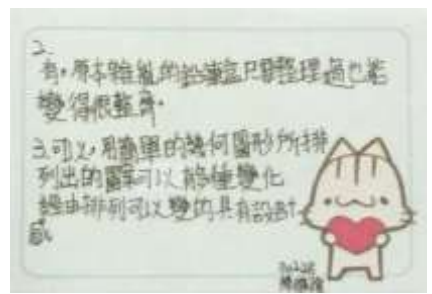 2.
有,原本雜亂的鉛筆盒只要整理過也能
變得很整齊。
3.可以,用簡單的幾何圖形所排
列出的圖案可以有各種變化
經由排列可以變的具有設計
感